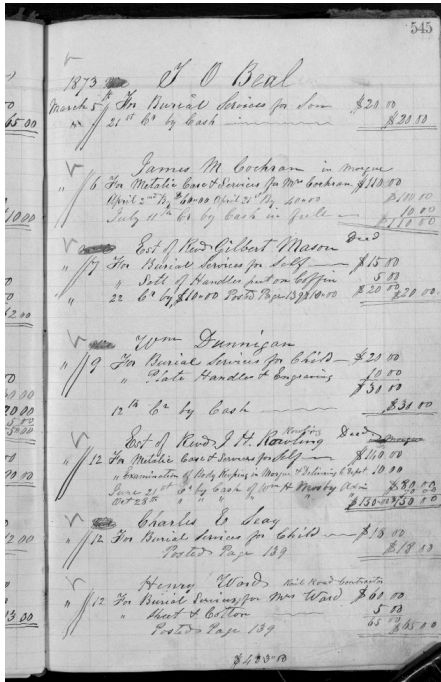 545
1873 J O Beal
March 5th For Burial Services for Son $20.00
" 21st Cr by Cash $20.00
James M Cochran in Morgue
" 6 For Metalic Case & Services for Mrs Cochran $110.00
April 2nd By $60.00 April 21st By 40.00 $100.00
July 11th Cr by Cash in full 10.00
$110.00
Est of Revd Gilbert Mason Dced
" 7 For Burial Services for Self $15.00
" Sett of Handles put on Coffin 5.00
" 22 Cr by $10.00 Posted Page 139 $10.00 $20.00 $20.00
Wm Dunnigan
" 9 For Burial Services for Child $20.00
" Plate Handles & Engraving 10.00
$30.00
12th Cr by Cash $30.00
Est of Revd J. H. Rowling Dced
" 12 For Metalic Case & Services for Self $140.00
" Examination of Body Keeping in Morgue & Delivering 10.00
June 21st Cr by Cash of Wm H Mosby Adm $80.00
Oct 28th " " " "
$150.00 $150.00
Charles E Seay
" 12 For Burial Services for Child $18.00
Posted Page 139 $18.00
Henry Ward Rail Road Contractor
" 12 For Burial Services for Mrs Ward $60.00
" Sheet & Cotton 5.00
Posted Page 139 65.00 $65.00
$423.00
65.00
10.00
2.00
20.00
5.00
2.00
3.00